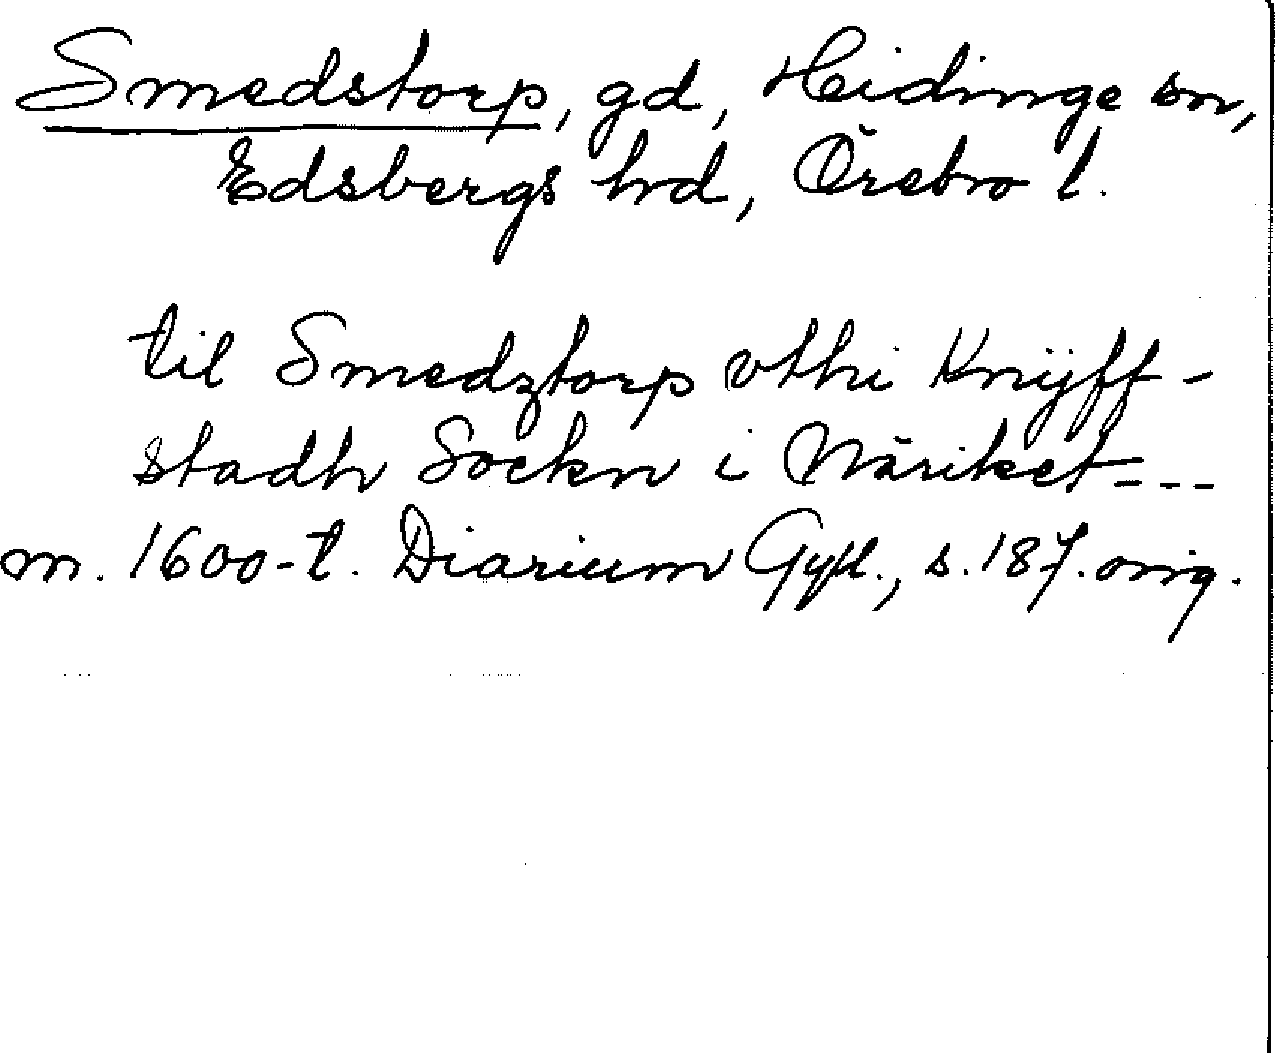 Smedstorp, gd, Hidinge sn,
Edsbergs hrd, Örebro l.
til Smedztorp vthi Knÿff-
stadh Sockn i Näriket---
m. 1600-t. Diarium Gyll., s. 187. orig.